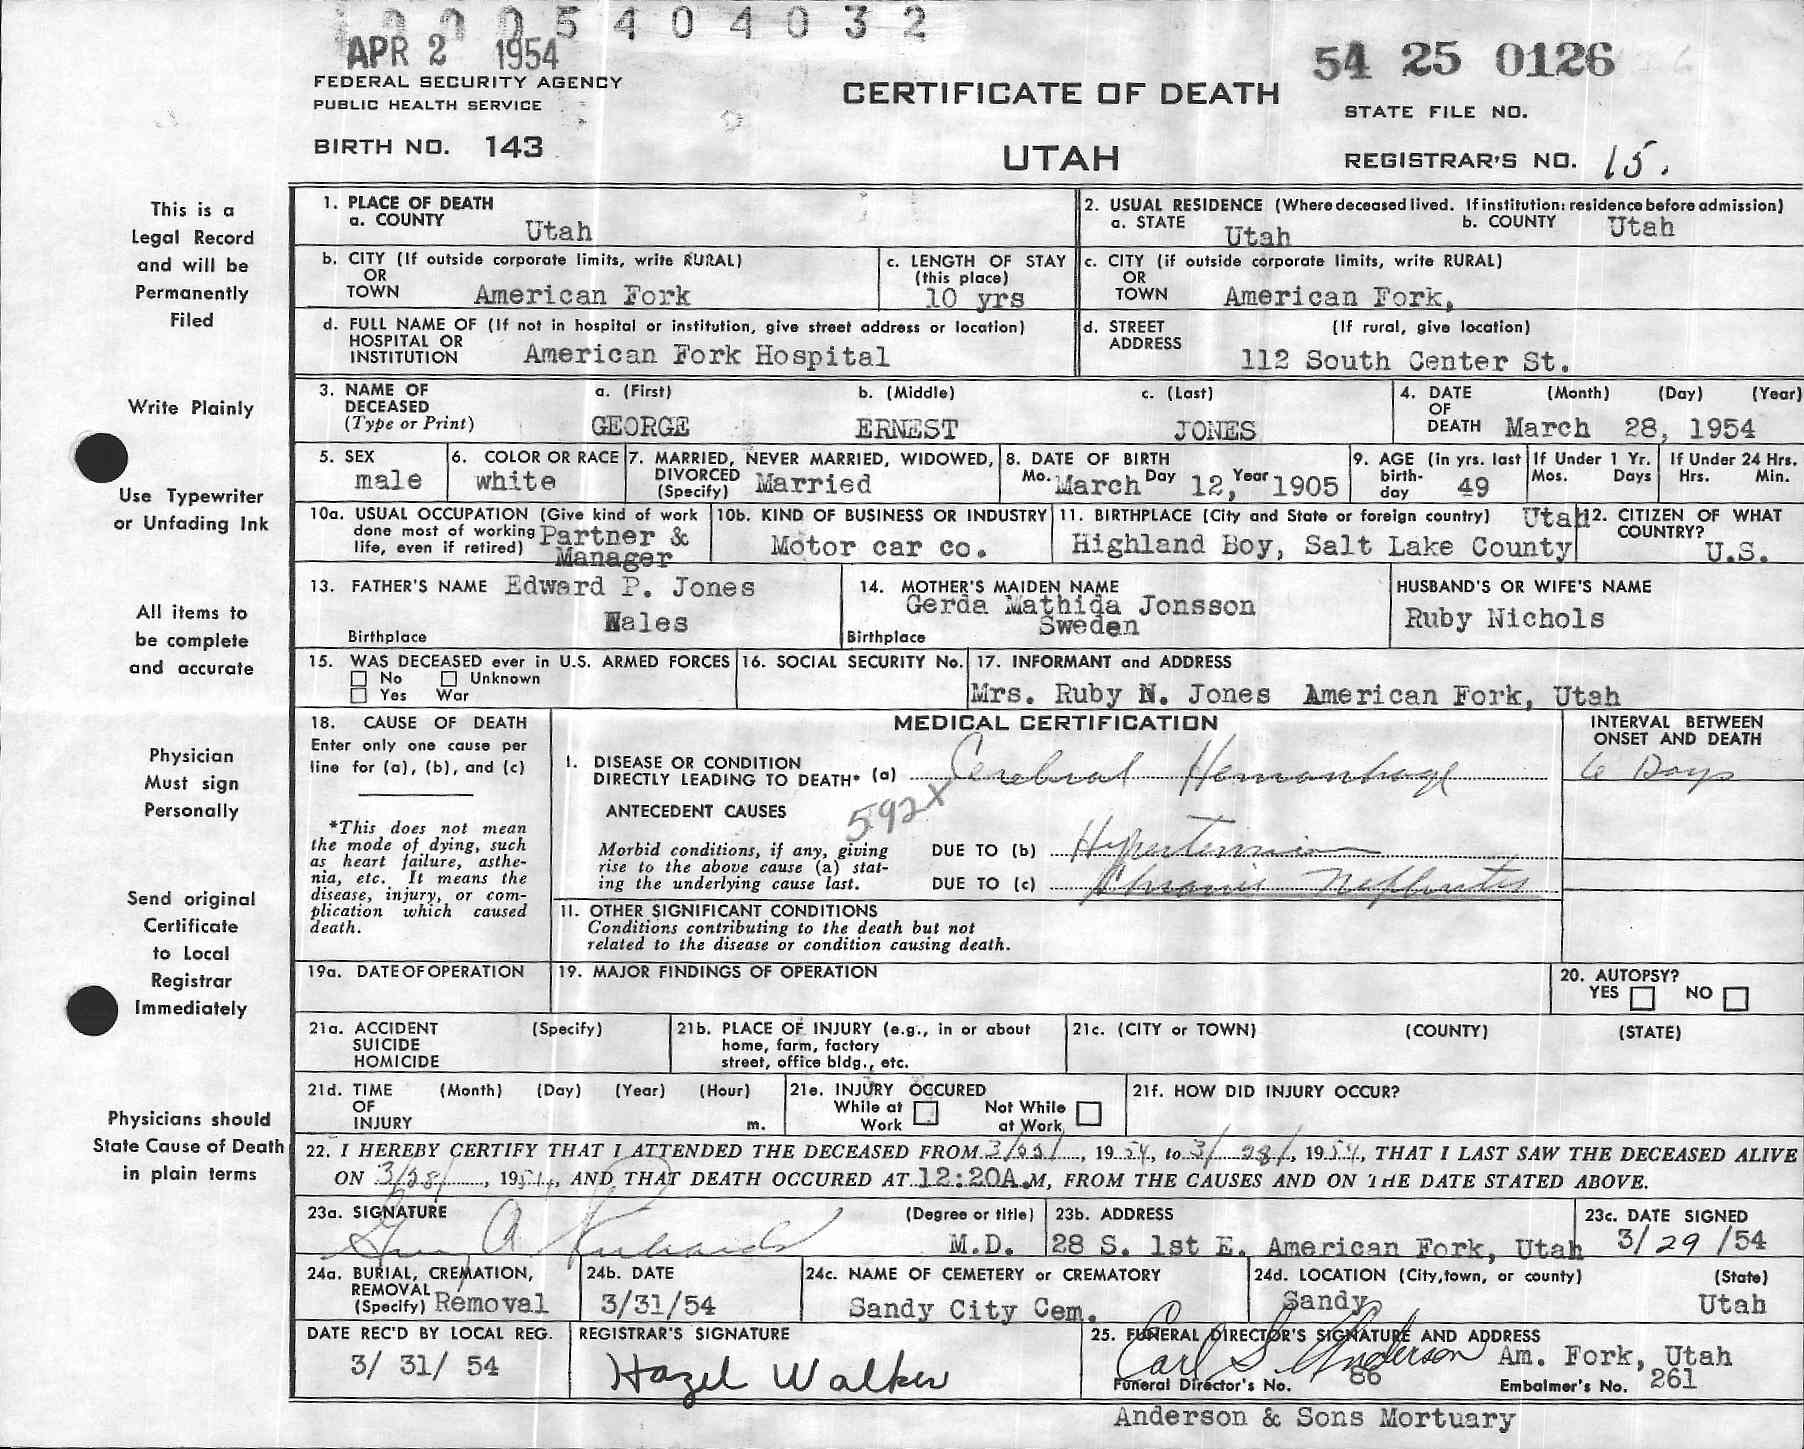 1 0 0 0 5 4 0 4 0 3 2
APR 2 1954
54 25 0126
FEDERAL SECURITY AGENCY
PUBLIC HEALTH SERVICE
CERTIFICATE OF DEATH
STATE FILE NO.
BIRTH NO. 143
UTAH
REGISTRAR'S NO. 15.
This is a
Legal Record
and will be
Permanently
Filed
Write Plainly
Use Typewriter
or Unfading Ink
All items to
be complete
and accurate
Physician
Must sign
Personally
Send original
Certificate
to Local
Registrar
Immediately
Physicians should
State Cause of Death
in plain terms
1. PLACE OF DEATH
a. COUNTY Utah
2. USUAL RESIDENCE (Where deceased lived. If institution: residence before admission)
a. STATE Utah b. COUNTY Utah
b. CITY (If outside corporate limits, write RURAL)
OR
TOWN American Fork
c. LENGTH OF STAY
(this place)
10 yrs
c. CITY (if outside corporate limits, write RURAL)
OR
TOWN American Fork,
d. FULL NAME OF (If not in hospital or institution, give street address or location)
HOSPITAL OR
INSTITUTION American Fork Hospital
d. STREET (If rural, give location)
ADDRESS
112 South Center St.
3. NAME OF a. (First) b. (Middle) c. (Last)
DECEASED
(Type or Print) GEORGE ERNEST JONES
4. DATE (Month) (Day) (Year)
OF
DEATH March 28, 1954
5. SEX
male
6. COLOR OR RACE
white
7. MARRIED, NEVER MARRIED, WIDOWED,
DIVORCED
(Specify) Married
8. DATE OF BIRTH
Mo. March Day 12, Year 1905
9. AGE (in yrs. last
birth-
day 49
If Under 1 Yr.
Mos. Days
If Under 24 Hrs.
Hrs. Min.
10a. USUAL OCCUPATION (Give kind of work
done most of working
life, even if retired) Partner &
Manager
10b. KIND OF BUSINESS OR INDUSTRY
Motor car co.
11. BIRTHPLACE (City and State or foreign country) Utah
Highland Boy, Salt Lake County
12. CITIZEN OF WHAT
COUNTRY?
U.S.
13. FATHER'S NAME Edward P. Jones
Wales
Birthplace
14. MOTHER'S MAIDEN NAME
Gerda Mathida Jonsson
Sweden
Birthplace
HUSBAND'S OR WIFE'S NAME
Ruby Nichols
15. WAS DECEASED ever in U.S. ARMED FORCES
No Unknown
Yes War
16. SOCIAL SECURITY No.
17. INFORMANT and ADDRESS
Mrs. Ruby N. Jones American Fork, Utah
18. CAUSE OF DEATH
Enter only one cause per
line for (a), (b), and (c)
*This does not mean
the mode of dying, such
as heart failure, asthe-
nia, etc. It means the
disease, injury, or com-
plication which caused
death.
MEDICAL CERTIFICATION
INTERVAL BETWEEN
ONSET AND DEATH
I. DISEASE OR CONDITION
DIRECTLY LEADING TO DEATH* (a) Cerebral Hemorrhage 6 Days
ANTECEDENT CAUSES 592X
Morbid conditions, if any, giving
rise to the above cause (a) stat-
ing the underlying cause last.
DUE TO (b) Hypertension
DUE TO (c) Chronic Nephritis
11. OTHER SIGNIFICANT CONDITIONS
Conditions contributing to the death but not
related to the disease or condition causing death.
19a. DATE OF OPERATION
19. MAJOR FINDINGS OF OPERATION
20. AUTOPSY?
YES NO
21a. ACCIDENT (Specify)
SUICIDE
HOMICIDE
21b. PLACE OF INJURY (e.g., in or about
home, farm, factory
street, office bldg., etc.
21c. (CITY or TOWN) (COUNTY) (STATE)
21d. TIME (Month) (Day) (Year) (Hour)
OF
INJURY m.
21e. INJURY OCCURED
While at Not While
Work at Work
21f. HOW DID INJURY OCCUR?
22. I HEREBY CERTIFY THAT I ATTENDED THE DECEASED FROM 1954, to 3/28/, 1954, THAT I LAST SAW THE DECEASED ALIVE
ON 3/28/, 1954, AND THAT DEATH OCCURED AT 12:20A.M, FROM THE CAUSES AND ON THE DATE STATED ABOVE.
23a. SIGNATURE (Degree or title)
Guy A Richards M.D.
23b. ADDRESS
28 S. 1st E. American Fork, Utah
23c. DATE SIGNED
3/29/54
24a. BURIAL, CREMATION,
REMOVAL
(Specify) Removal
24b. DATE
3/31/54
24c. NAME OF CEMETERY or CREMATORY
Sandy City Cem.
24d. LOCATION (City, town, or county) (State)
Sandy, Utah
DATE REC'D BY LOCAL REG.
3/ 31/ 54
REGISTRAR'S SIGNATURE
Hazel Walker
25. FUNERAL DIRECTOR'S SIGNATURE AND ADDRESS
Carl S. Anderson Am. Fork, Utah
Funeral Director's No. 86 Embalmer's No. 261
Anderson & Sons Mortuary